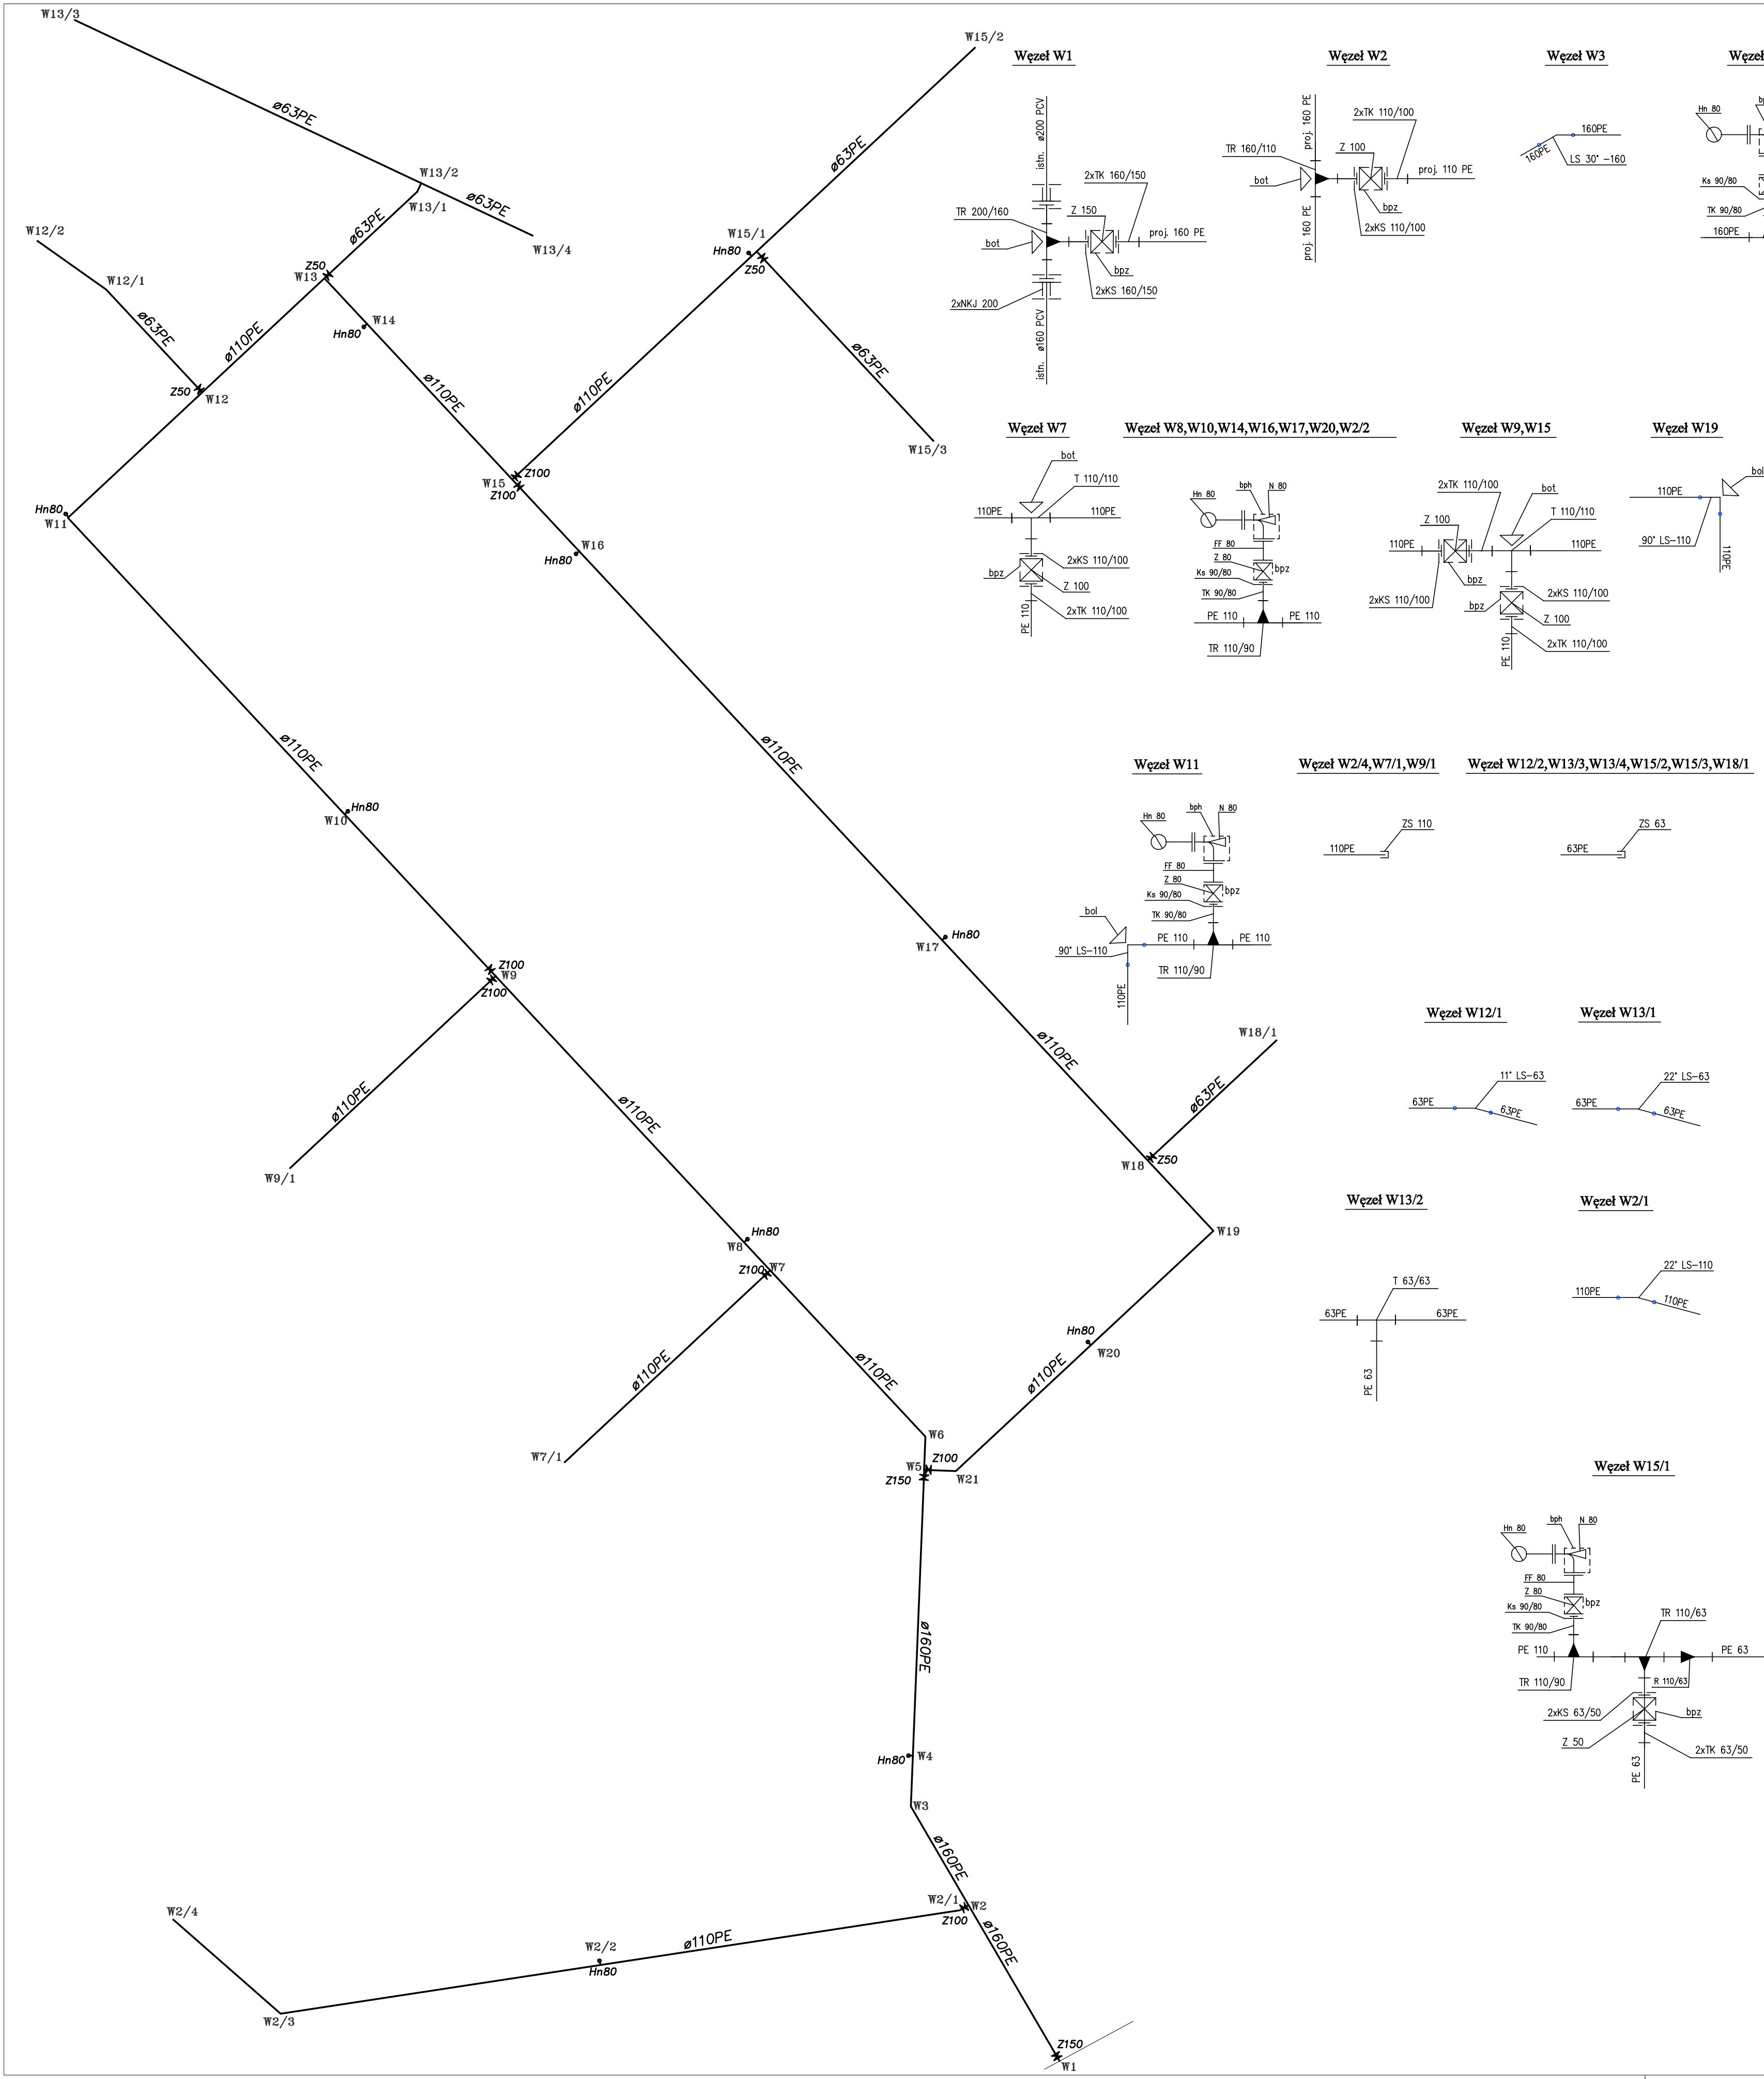 W13/3
ø63PE
W13/2
W13/1
ø63PE
W13/4
ø63PE
W12/2
W12/1
ø63PE
Z50
W13
W14
Hn80
ø110PE
Z50
W12
ø110PE
W15/2
ø63PE
W15/1
Hn80
Z50
ø63PE
W15/3
ø110PE
Z100
W15
Z100
Hn80
W11
W16
Hn80
ø110PE
ø110PE
Hn80
W10
Hn80
W17
Z100
W9
Z100
ø110PE
W18/1
ø63PE
ø110PE
W9/1
ø110PE
W18
Z50
W19
Hn80
W8
Z100
W7
ø110PE
W7/1
ø110PE
Hn80
W20
ø110PE
W6
Z100
W5
Z150
W21
ø160PE
Hn80
W4
W3
ø160PE
W2/1
W2
Z100
W2/4
W2/2
Hn80
ø110PE
ø160PE
W2/3
Z150
W1
Węzeł W1
istn. ø200 PCV
2xTK 160/150
TR 200/160
Z 150
bot
proj. 160 PE
bpz
2xKS 160/150
2xNKJ 200
istn. ø160 PCV
Węzeł W2
proj. 160 PE
2xTK 110/100
TR 160/110
Z 100
bot
proj. 110 PE
bpz
2xKS 110/100
proj. 160 PE
Węzeł W3
160PE
160PE
LS 30° -160
Węzeł
Hn 80
Ks 90/80
TK 90/80
160PE
Węzeł W7
bot
T 110/110
110PE
110PE
2xKS 110/100
bpz
Z 100
2xTK 110/100
PE 110
Węzeł W8,W10,W14,W16,W17,W20,W2/2
bph
N 80
Hn 80
FF 80
Z 80
bpz
Ks 90/80
TK 90/80
PE 110
PE 110
TR 110/90
Węzeł W9,W15
2xTK 110/100
bot
Z 100
T 110/110
110PE
110PE
bpz
2xKS 110/100
2xKS 110/100
bpz
Z 100
2xTK 110/100
PE 110
Węzeł W19
bol
110PE
90° LS-110
110PE
Węzeł W11
bph
N 80
Hn 80
FF 80
Z 80
bpz
Ks 90/80
TK 90/80
bol
PE 110
PE 110
90° LS-110
TR 110/90
110PE
Węzeł W2/4,W7/1,W9/1
ZS 110
110PE
Węzeł W12/2,W13/3,W13/4,W15/2,W15/3,W18/1
ZS 63
63PE
Węzeł W12/1
11° LS-63
63PE
63PE
Węzeł W13/1
22° LS-63
63PE
63PE
Węzeł W13/2
T 63/63
63PE
63PE
PE 63
Węzeł W2/1
22° LS-110
110PE
110PE
Węzeł W15/1
bph
N 80
Hn 80
FF 80
Z 80
bpz
Ks 90/80
TK 90/80
TR 110/63
PE 110
PE 63
TR 110/90
R 110/63
2xKS 63/50
bpz
Z 50
2xTK 63/50
PE 63